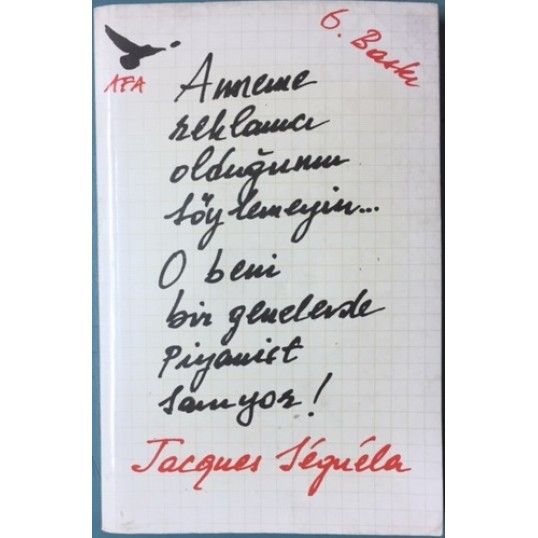 AFA
6. Baskı
Anneme
reklamcı
olduğumu
söylemeyin...
O beni
bir genelevde
Piyanist
sanıyor!
Jacques Séguéla